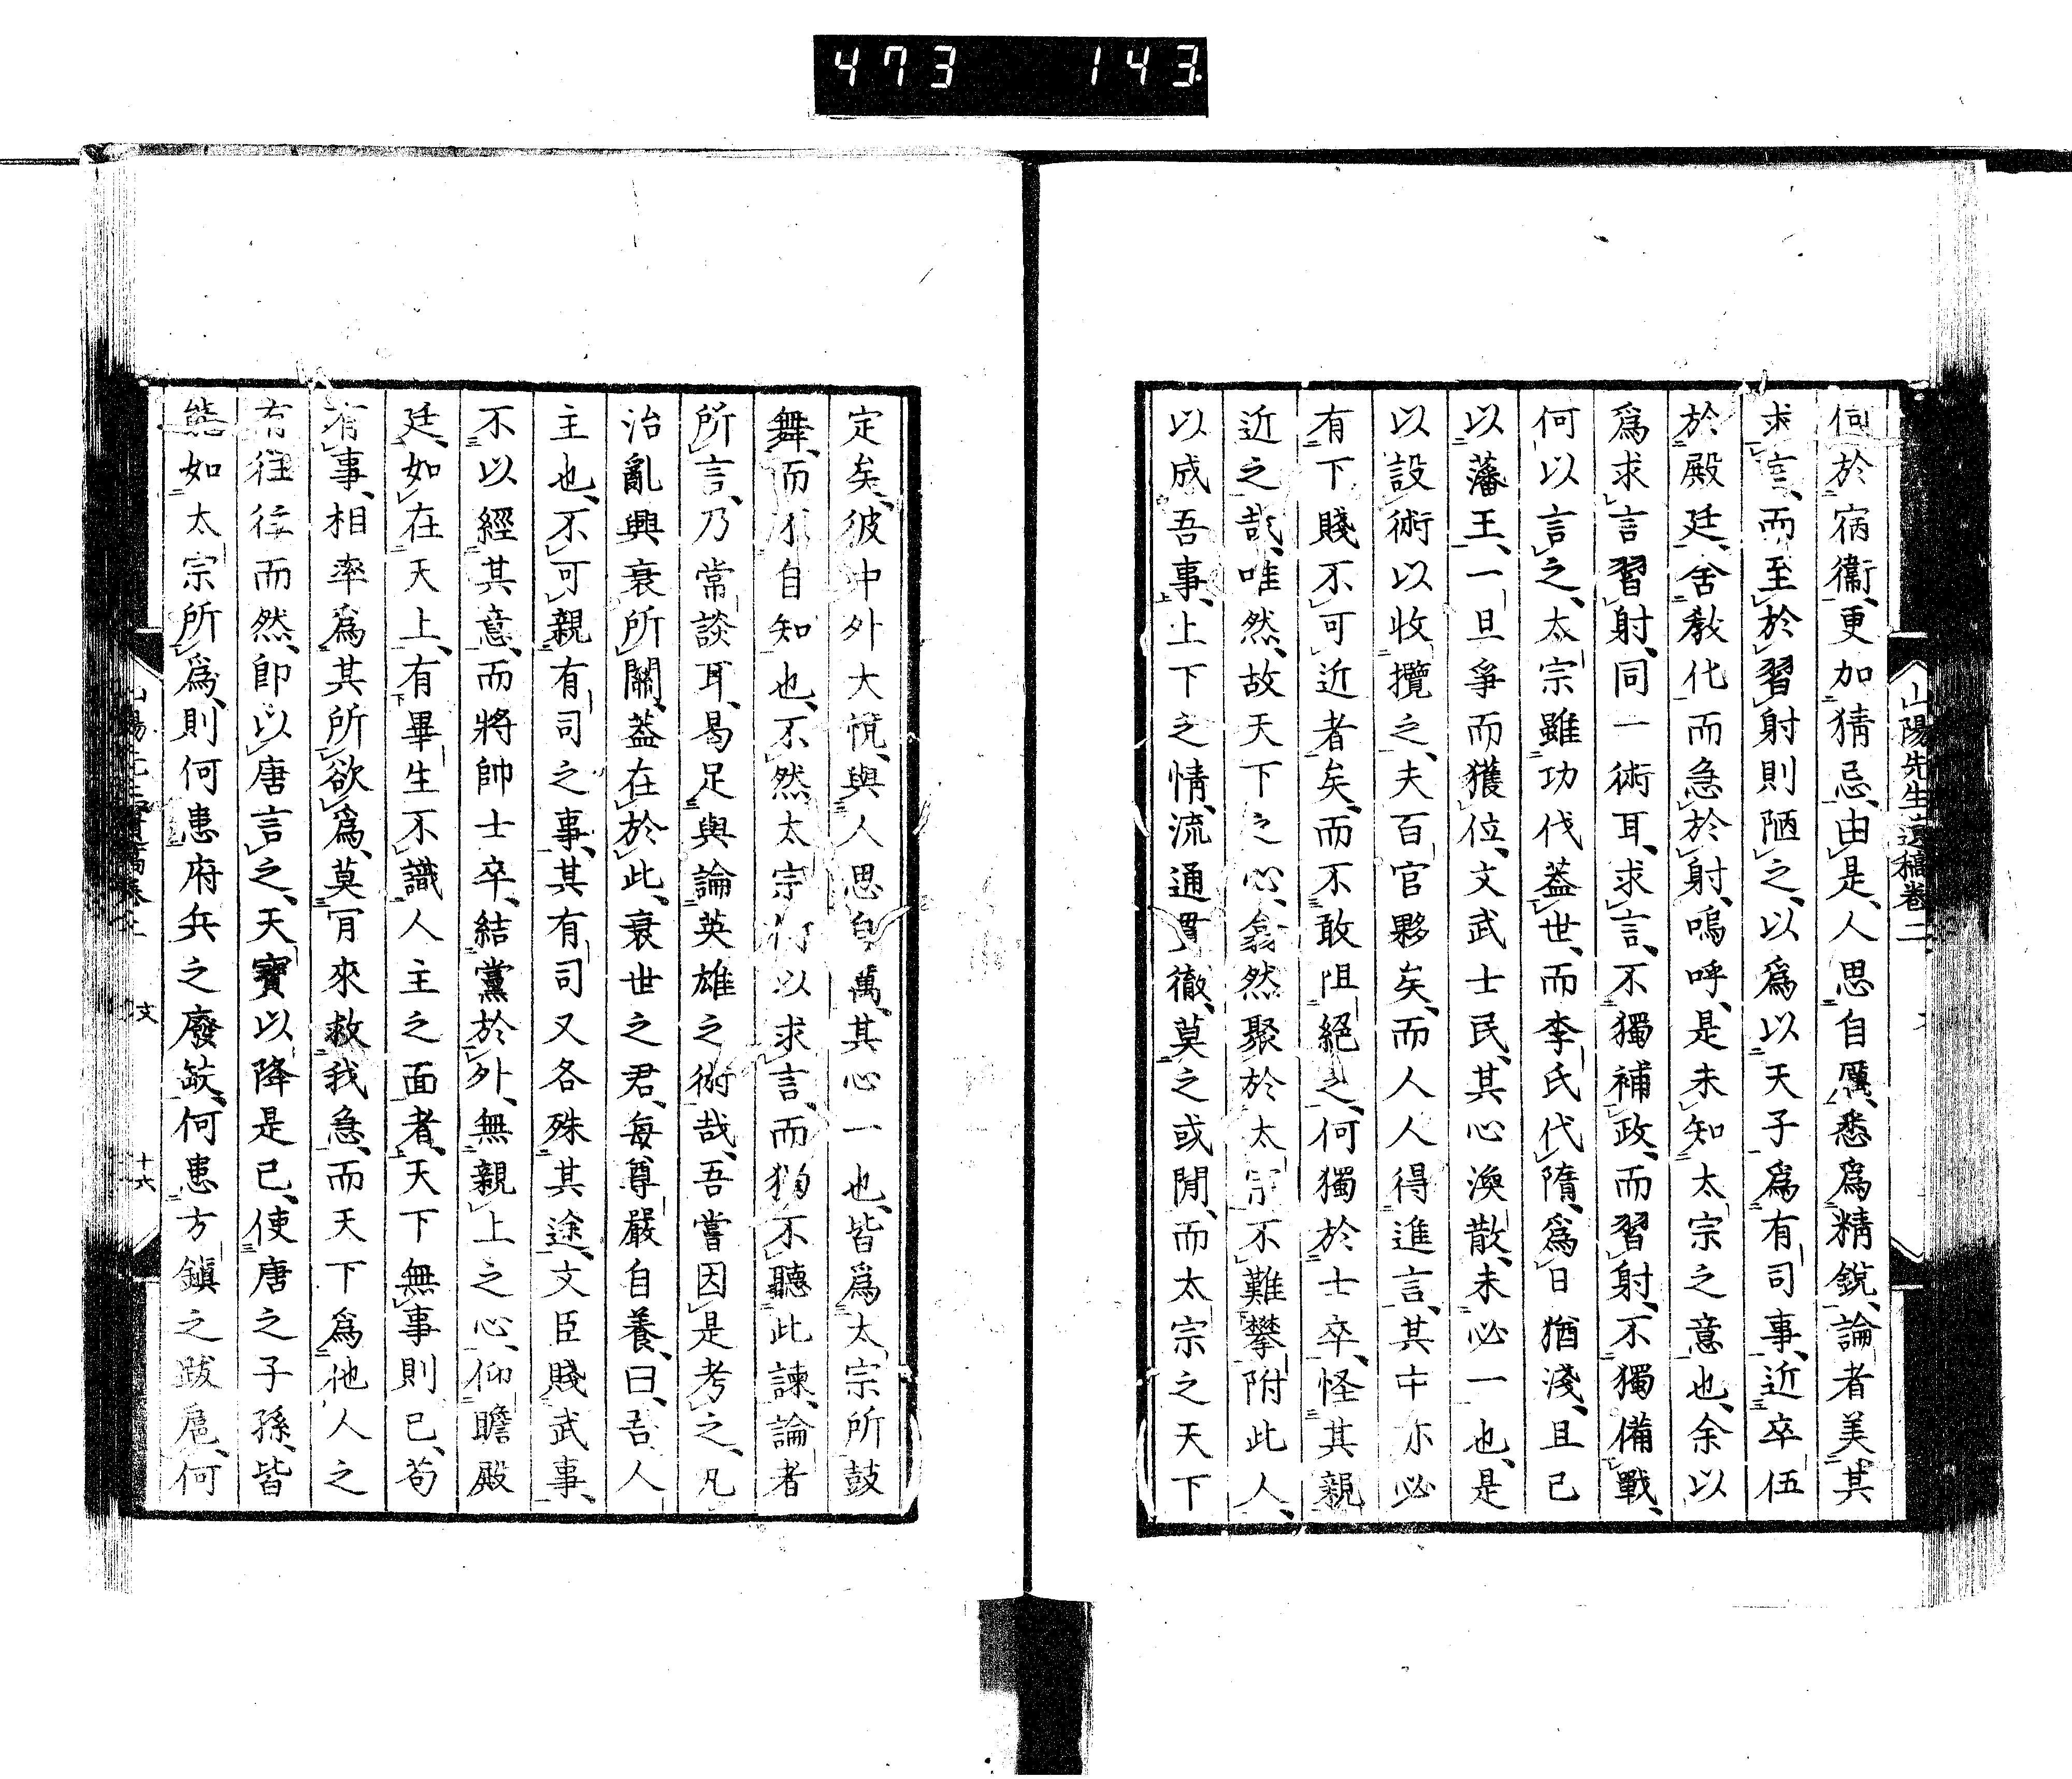 473 143
山陽先生遺稿卷二
何於宿衞、更加猜忌、由是、人思自厲、悉爲精銳、論者美其
求言、而至於習射則陋之、以爲以天子爲有司事、近卒伍
於殿廷、舍教化而急於射、嗚呼、是未知太宗之意也、余以
爲求言習射、同一術耳、求言、不獨補政、而習射、不獨備戰、
何以言之、太宗雖功伐蓋世、而李氏代隋、爲日猶淺、且已
以藩王、一旦爭而獲位、文武士民、其心渙散、未必一也、是
以設術以收攬之、夫百官夥矣、而人人得進言、其中亦必
有下賤不可近者矣、而不敢阻絕之、何獨於士卒、怪其親
近之哉、唯然、故天下之心、翕然聚於太宗、不難攀附此人、
以成吾事、上下之情、流通貫徹、莫之或閒、而太宗之天下
定矣、彼中外大悅、與人思自萬、其心一也、皆爲太宗所鼓
舞、而不自知也、不然太宗何以求言、而猶不聽此諫、論者
所言、乃常談耳、曷足與論英雄之術哉、吾嘗因是考之、凡
治亂興衰所關、蓋在於此、衰世之君、每尊嚴自養、曰、吾人
主也、不可親有司之事、其有司又各殊其途、文臣賤武事、
不以經其意、而將帥士卒、結黨於外、無親上之心、仰瞻殿
廷、如在天上、有畢生不識人主之面者、天下無事則已、苟
有事、相率爲其所欲爲、莫肯來救我急、而天下爲他人之
有往往而然、卽以唐言之、天寶以降是已、使唐之子孫、皆
能如太宗所爲、則何患府兵之廢缺、何患方鎭之跋扈、何
文
十六